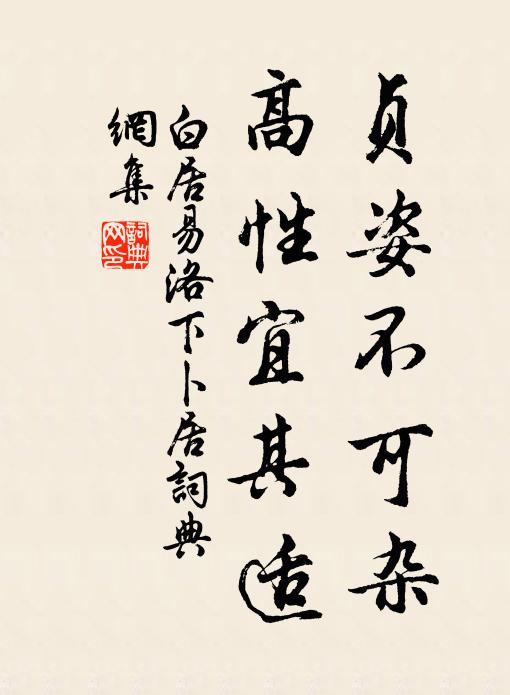 贞姿不可杂
高性宜其适
白居易洛下卜居詞典
網集
詞典网印